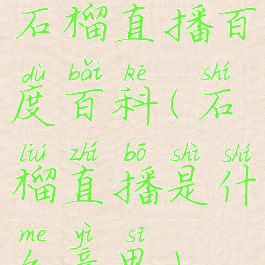 石榴直播百
dù bǎi kē shí
度百科(石
liú zhí bō shì shí
榴直播是什
me yì sī
么意思)